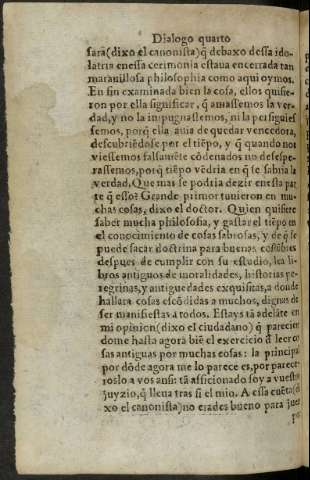 Dialogo quarto
sara(dixo el canonista)q̃ debaxo dessa ido-
latria enessa cerimonia estaua encerrada tan
marauillosa philosophia como aqui oymos.
En fin examinada bien la cosa, ellos quisie-
ron por ella significar, q̃ amassemos la ver-
dad,y no la impugnassemos, ni la persiguies
semos, porq̃ ella auia de quedar vencedora,
descubriẽdose por el tiẽpo, y q̃ quando nos
viessemos falsamẽte cõdenados no desespe-
rassemos,porq̃ tiẽpo vẽdria en q̃ se sabria la
verdad.Que mas se podria dezir enesta par
te q̃ esso? Grande primor tuuieron en mu-
chas cosas, dixo el doctor. Quien quisiere
saber mucha philosofia, y gastar el tiẽpo en
el conocimiento de cosas sabrosas, y de q̃ se
puede sacar doctrina para buenas costũbres
despues de cumplir con su estudio, lea li-
bros antiguos de moralidades, historias pe
regrinas,y antiguedades exquisitas,a donde
hallara cosas escõdidas a muchos, dignas de
ser manifiestas a todos. Estays tã adelãte en
mi opinion(dixo el ciudadano) q̃ parecien
dome hasta agora biẽ el exercicio d̃ leer co
sas antiguas por muchas cosas: la principal
por dõde agora me lo parece es,por parece-
roslo a vos ansi: tã afficionado soy a vuestro
juyzio,q̃ lleua tras si el mio. A essa cuẽta(di
xo el canonista)no erades bueno para juez